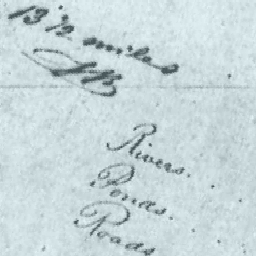 13 ½ miles
Rivers.
Ponds.
Roads